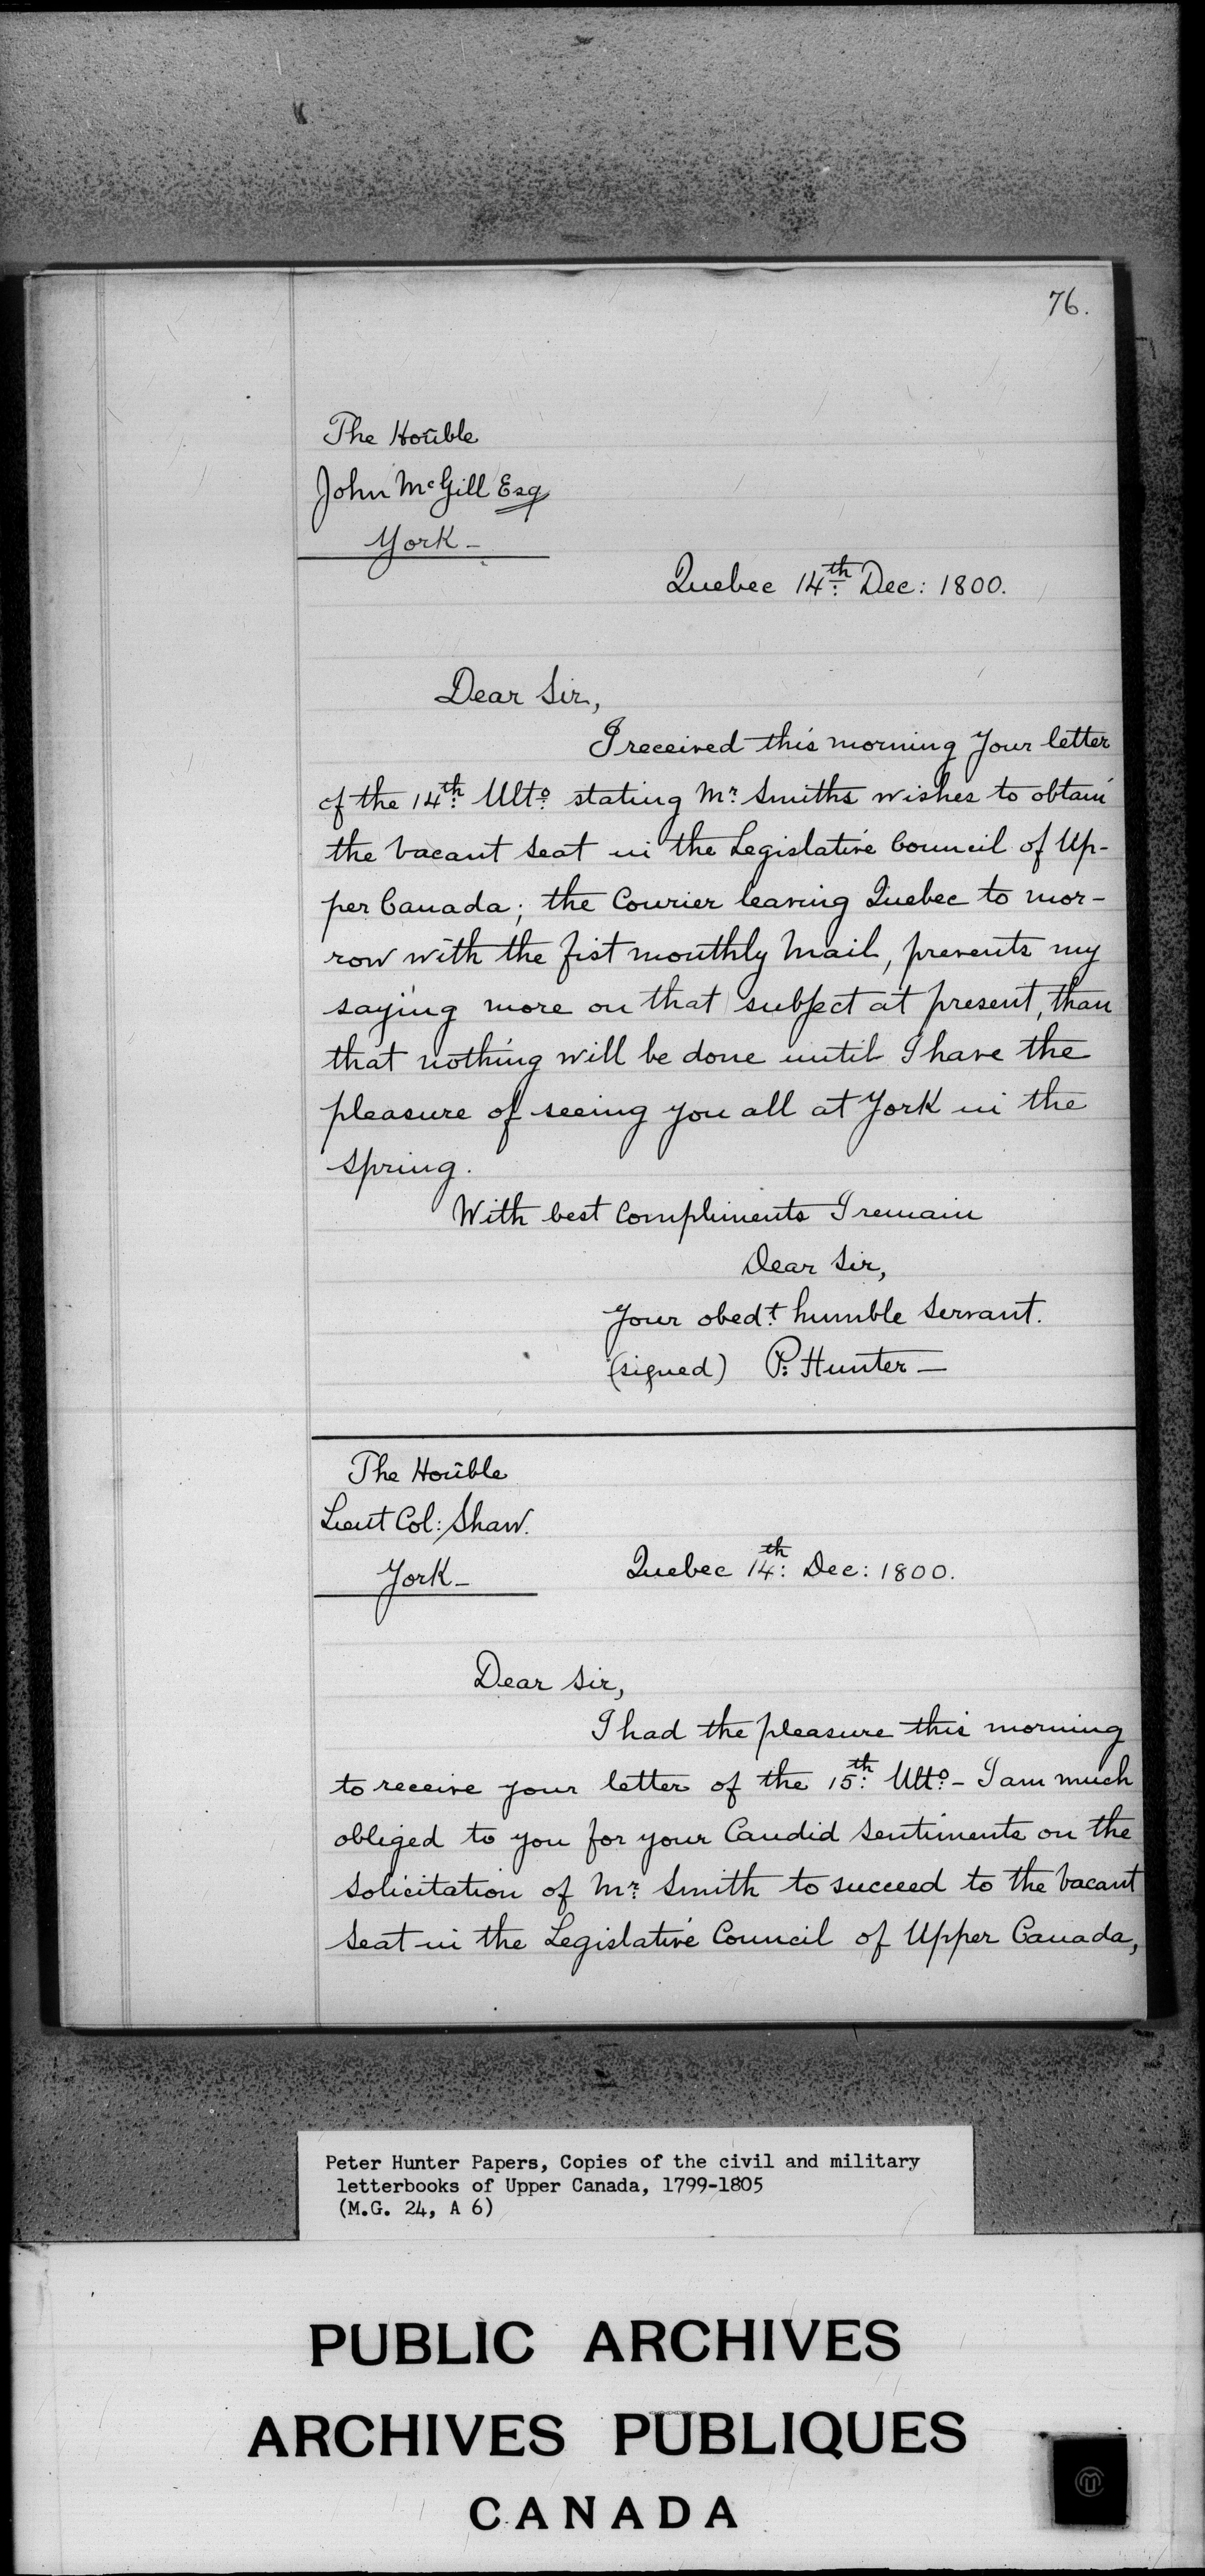 76.
The Honble
John McGill Esq
York -
Quebec 14th Dec: 1800.
Dear Sir,
I received this morning Your letter
of the 14th Ulto. stating Mr. Smiths wishes to obtain
the vacant seat in the Legislative Council of Up-
per Canada; the Courier leaving Quebec to mor-
row with the fist monthly mail, prevents my
saying more on that subject at present, than
that nothing will be done until I have the
pleasure of seeing you all at York in the
Spring.
With best Compliments I remain
Dear Sir,
Your obedt. humble Servant.
(signed) P: Hunter -
The Honble
Lieut Col: Shaw.
York -
Quebec 14th: Dec: 1800.
Dear Sir,
I had the pleasure this morning
to receive your letter of the 15th: Ulto. - I am much
obliged to you for your Candid Sentiments on the
Solicitation of Mr. Smith to succeed to the vacant
Seat in the Legislative Council of Upper Canada,
Peter Hunter Papers, Copies of the civil and military
letterbooks of Upper Canada, 1799-1805
(M.G. 24, A 6)
PUBLIC ARCHIVES
ARCHIVES PUBLIQUES
CANADA